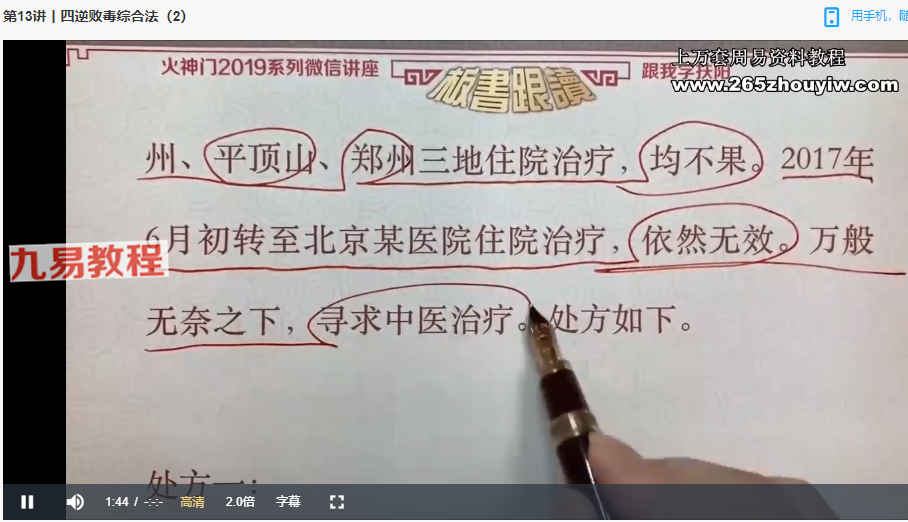 第13讲 | 四逆败毒综合法（2）
用手机，随
火神门2019系列微信讲座
板書跟讀
跟我学扶阳
上万套周易资料教程
www.265zhouyiw.com
州、平顶山、郑州三地住院治疗，均不果。2017年
6月初转至北京某医院住院治疗，依然无效。万般
九易教程
无奈之下，寻求中医治疗。处方如下。
处方一：
1:44 / -:-:- 高清 2.0倍 字幕